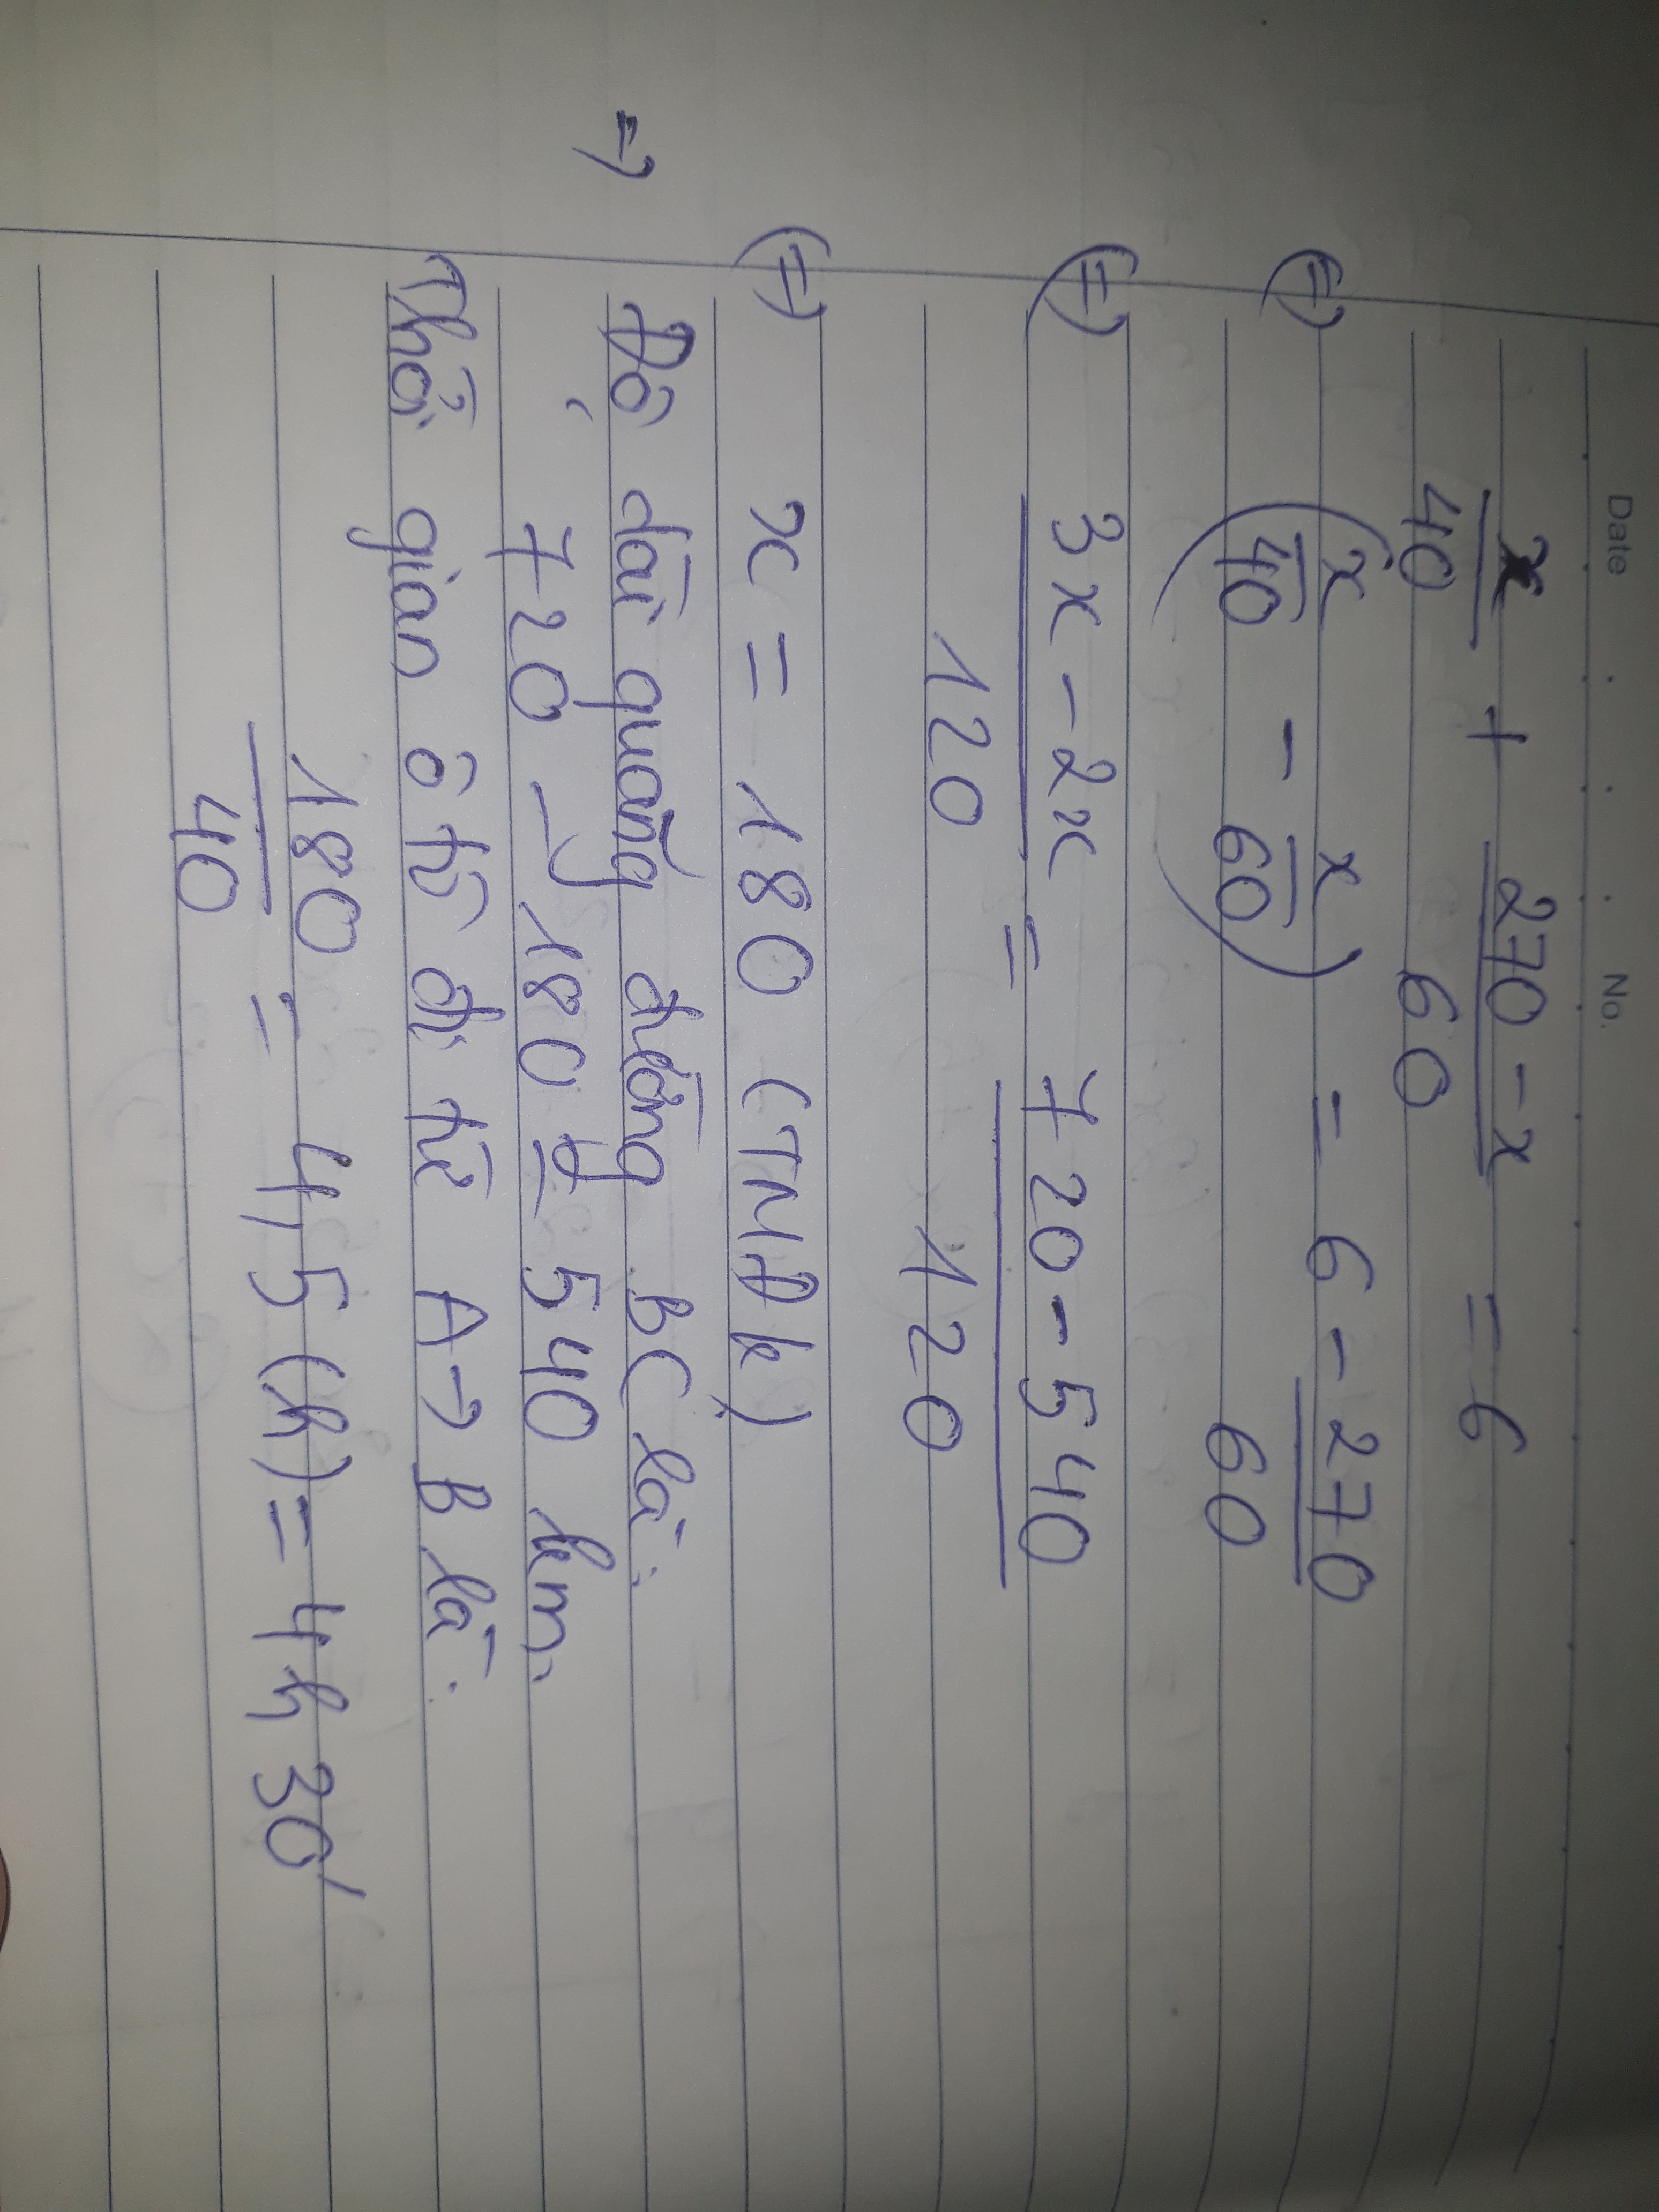 Date No.
x/40 + 270 - x/60 = 6
(=) (x/40 - x/60) = 6 - 270/60
(=) 3x - 2x/120 = 720 - 540/120
(=) x = 180 (TMĐk)
=> Độ dài quãng đường BC là:
720 - 180 = 540 km.
Thời gian ô tô đi từ A → B là:
180/40 = 4,5 (h) = 4h 30'